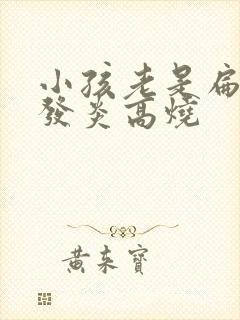 小孩老是扁
發炎高燒
黃来寶